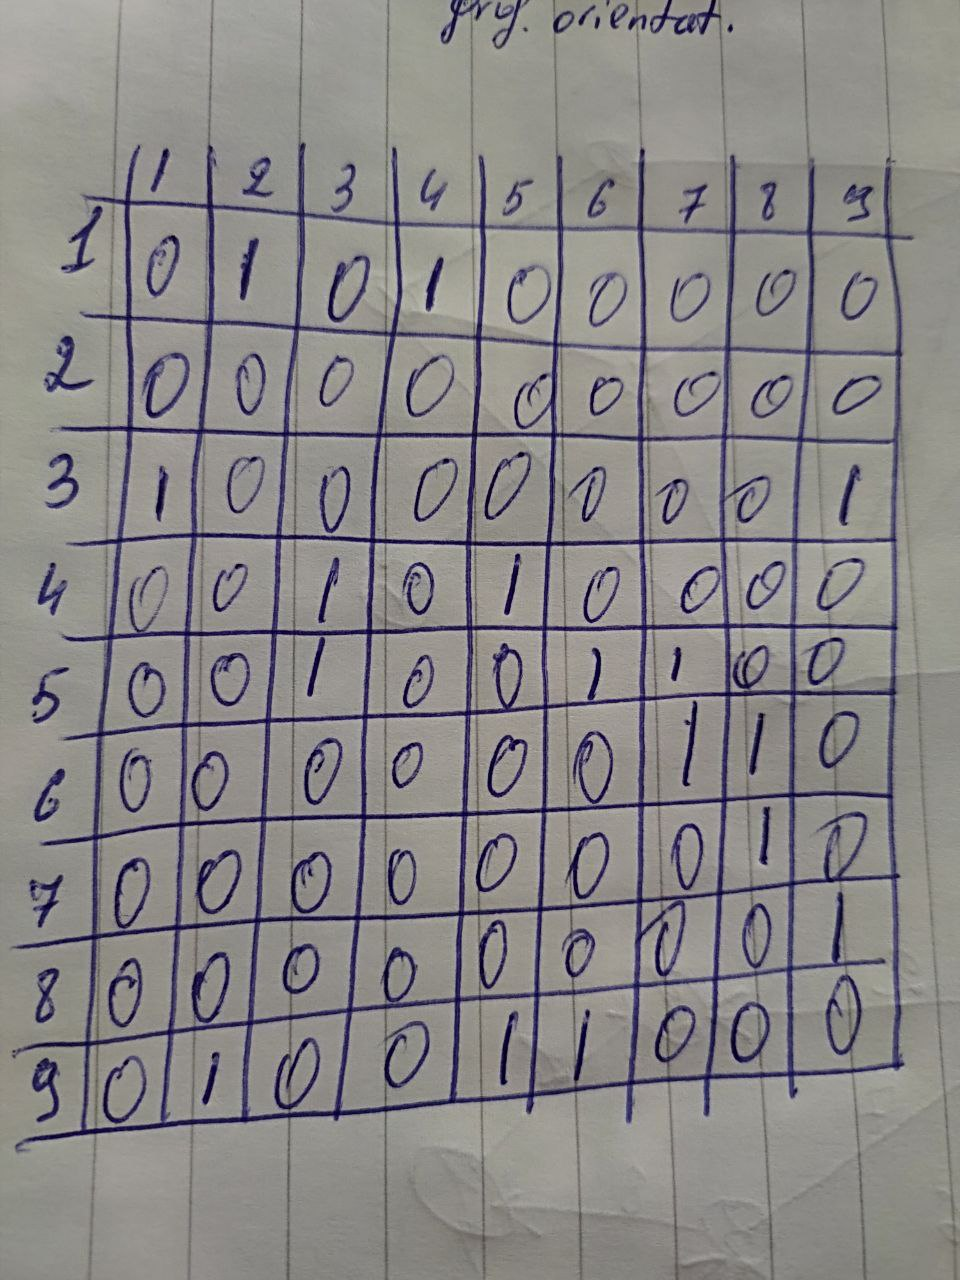 grf. orientat.
1 2 3 4 5 6 7 8 9
1 0 1 0 1 0 0 0 0 0
2 0 0 0 0 0 0 0 0 0
3 1 0 0 0 0 0 0 0 1
4 0 0 1 0 1 0 0 0 0
5 0 0 1 0 0 1 1 0 0
6 0 0 0 0 0 0 1 1 0
7 0 0 0 0 0 0 0 1 0
8 0 0 0 0 0 0 0 0 1
9 0 1 0 0 1 1 0 0 0